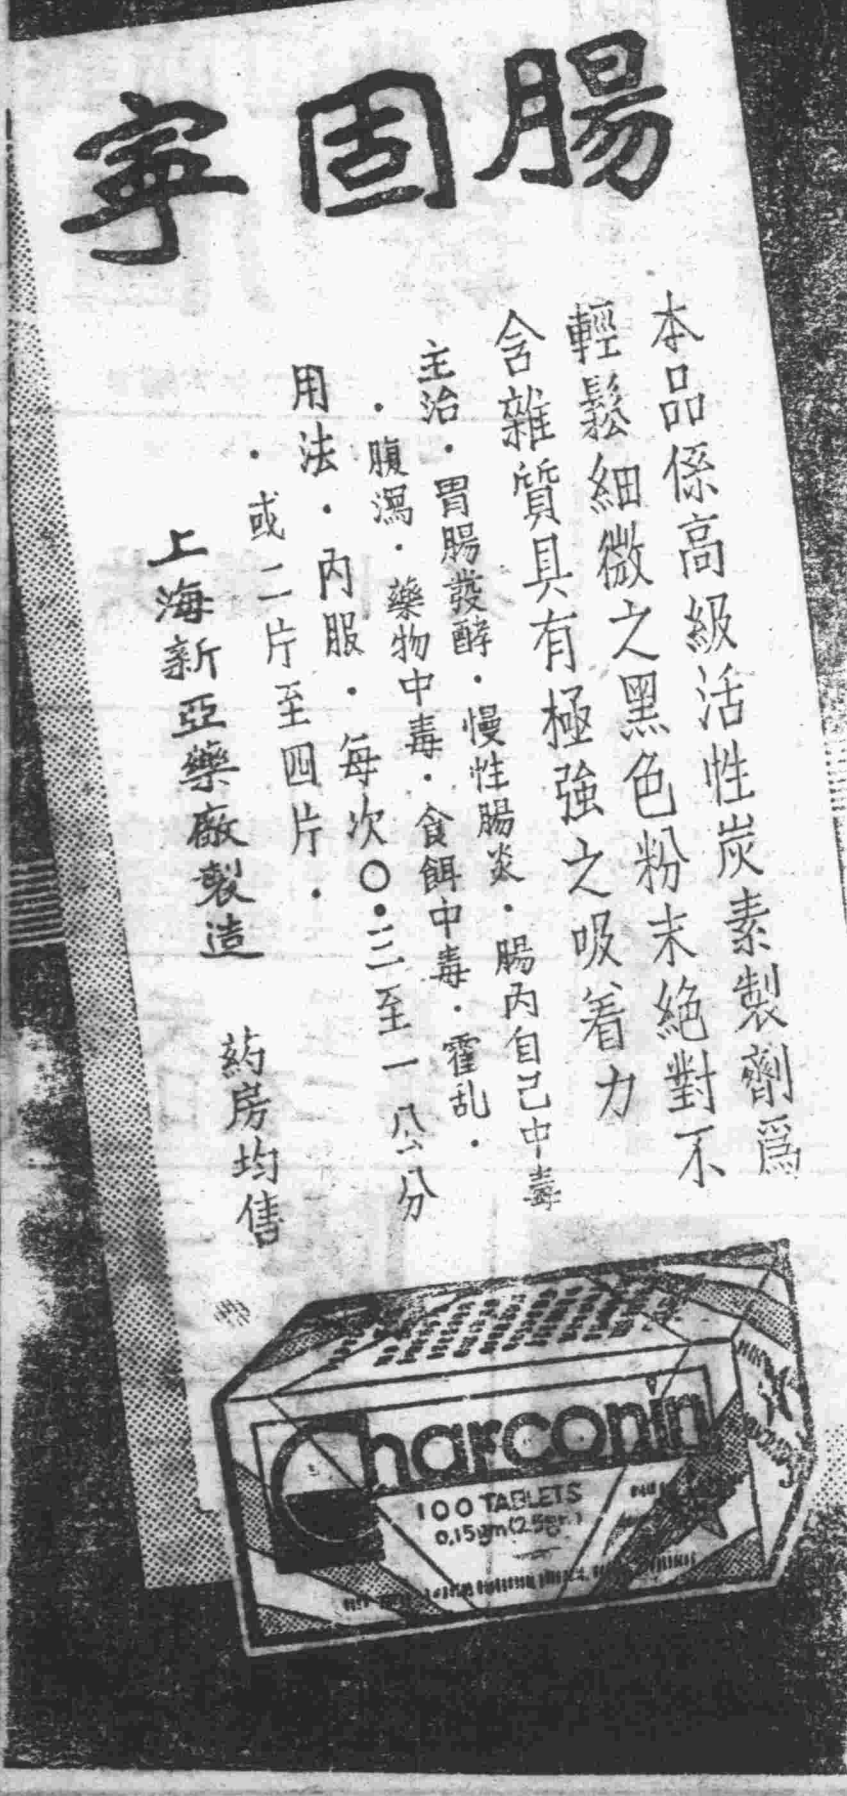 腸固寧
本品係高級活性炭素製劑爲
輕鬆細微之黑色粉末絕對不
含雜質具有極強之吸着力
主治・胃腸發酵・慢性腸炎・腸內自己中毒
・腹瀉・藥物中毒・食餌中毒・霍乱・
用法・內服・每次〇・三至一公分
・或二片至四片・
上海新亞藥廠製造 葯房均售
Charconin
100 TABLETS
0,15gm(2.5gr.)